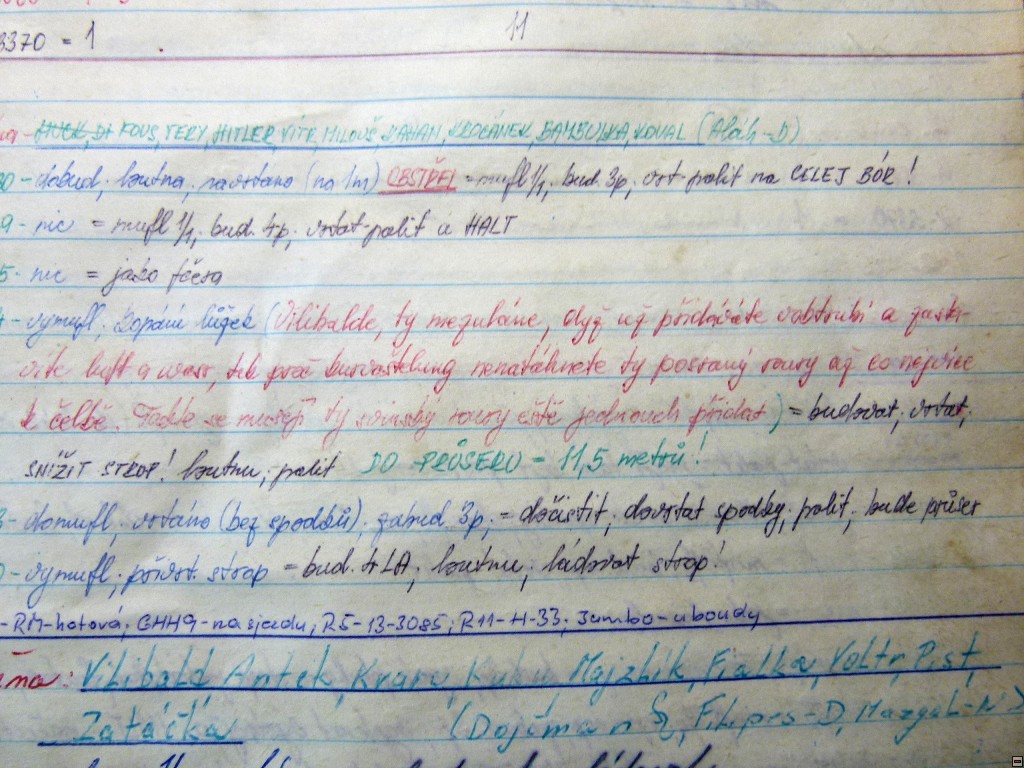 3370 = 1
11
FOUS, TERY, HITLER, VÍTR, MILOUŠ, KAHAN, KROCÁNEK, BAMBULKA, KOVAL (Aláh-D)
lutna, navrtáno (na 1m) OBSTŘEL = mufl 1/1, bud. 3p, vrt-palit na CELEJ BÓR!
9- nic = mufl 1/1, bud. 4p, vrtat-palit a HALT
5- nic = jako fčera
vymufl, kopání lůžek (Vilibalde, ty mezuláne, dyž už přidáváte a
luft a wasr, tak proč nenatáhnete ty posraný roury až co nejvíce
k čelbě. Takle se musej ty svinsky roury eště jednouch přidat) = budovat, vrtat,
SNÍŽIT STROP! lutnu, palit DO PRŮSERU - 11,5 metrů!
domufl, vrtáno (bez spodků), zabud 3p, = dočistit, dovrtat spodky, palit, bude průser
vymufl, přivrt. strop = bud. 4 LA, lutnu, ládovat strop!
-RM-hotová, GHH9-na sjezdu, R5-13-3085, R11-H-33, Jumbo-u boudy
Vilibald, Antek, Kvary, Kuku, Majzlík, Fialka, Voltr, Pist,
Zatáčka (Dojčman, Filipes-D, Mazgal-N)